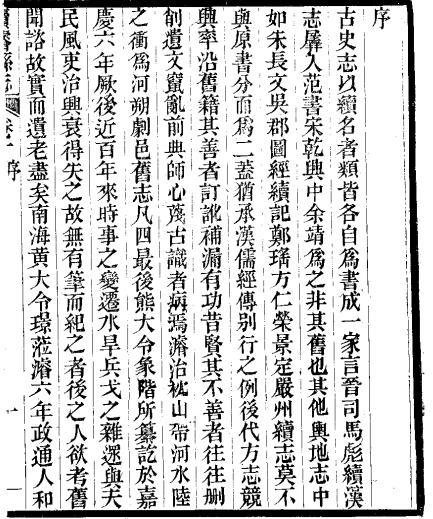 序
古史志以續名者類皆各自爲書成一家言晉司馬彪續漢
志羼入范書宋乾興中余靖爲之非其舊也其他輿地志中
如朱長文吳郡圖經續記鄭瑤方仁榮景定嚴州續志莫不
與原書分而爲二蓋猶承漢儒經傳別行之例後代方志競
興率沿舊籍其善者訂訛補漏有功昔賢其不善者往往刪
創遺文竄亂前典師心蔑古識者病焉濬治枕山帶河水陸
之衝爲河朔劇邑舊志凡四最後熊大令象階所纂訖於嘉
慶六年厥後近百年來時事之變遷水旱兵戈之雜遝與夫
民風吏治興衰得失之故無有筆而紀之者後之人欲考舊
聞諮故實而遺老盡矣南海黃大令璟蒞濬六年政通人和
續濬縣志
卷一
序
一